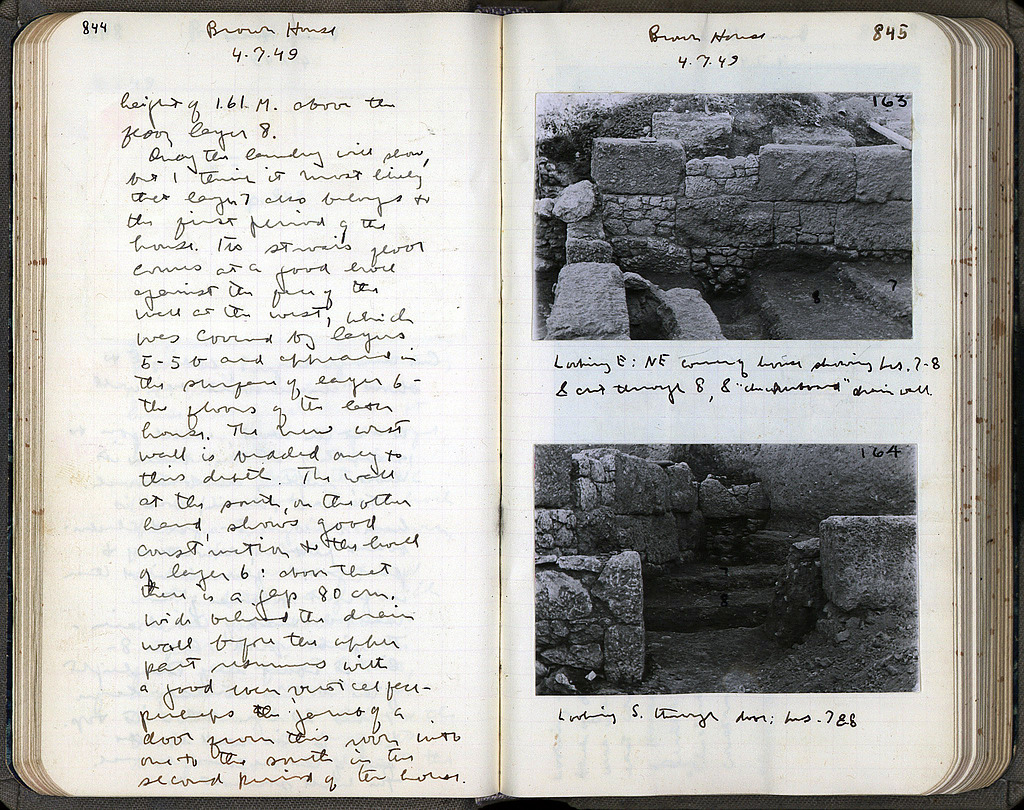 844
Brown House
4.7.49
height of 1.61 M. above the
floor, layer 8.
Only the laundry will show,
but I think it most likely
that layer 7 also belongs to
the first period of the
house. Its stucco floor
comes at a good level
against the face of the
wall at the west, which
was covered by layers
5-5b and appeared in
the surface of layer 6 -
the floors of the later
house. The new west
wall is bedded only to
this depth. The wall
at the south, on the other
hand, shows good
construction to the level
of layer 6: above that
there is a gap 80 cm.
wide behind the drain
wall before the upper
part resumes with
a good even vertical face -
perhaps the jamb of a
door from this room into
one to the south in the
second period of the house.
Brown House
845
4.7.49
163
7
8
Looking E: NE corner of house showing Lrs. 7-8
& cut through 8, & "checkerboard" drain wall.
164
7
8
Looking S. through door: Lrs. 7 & 8